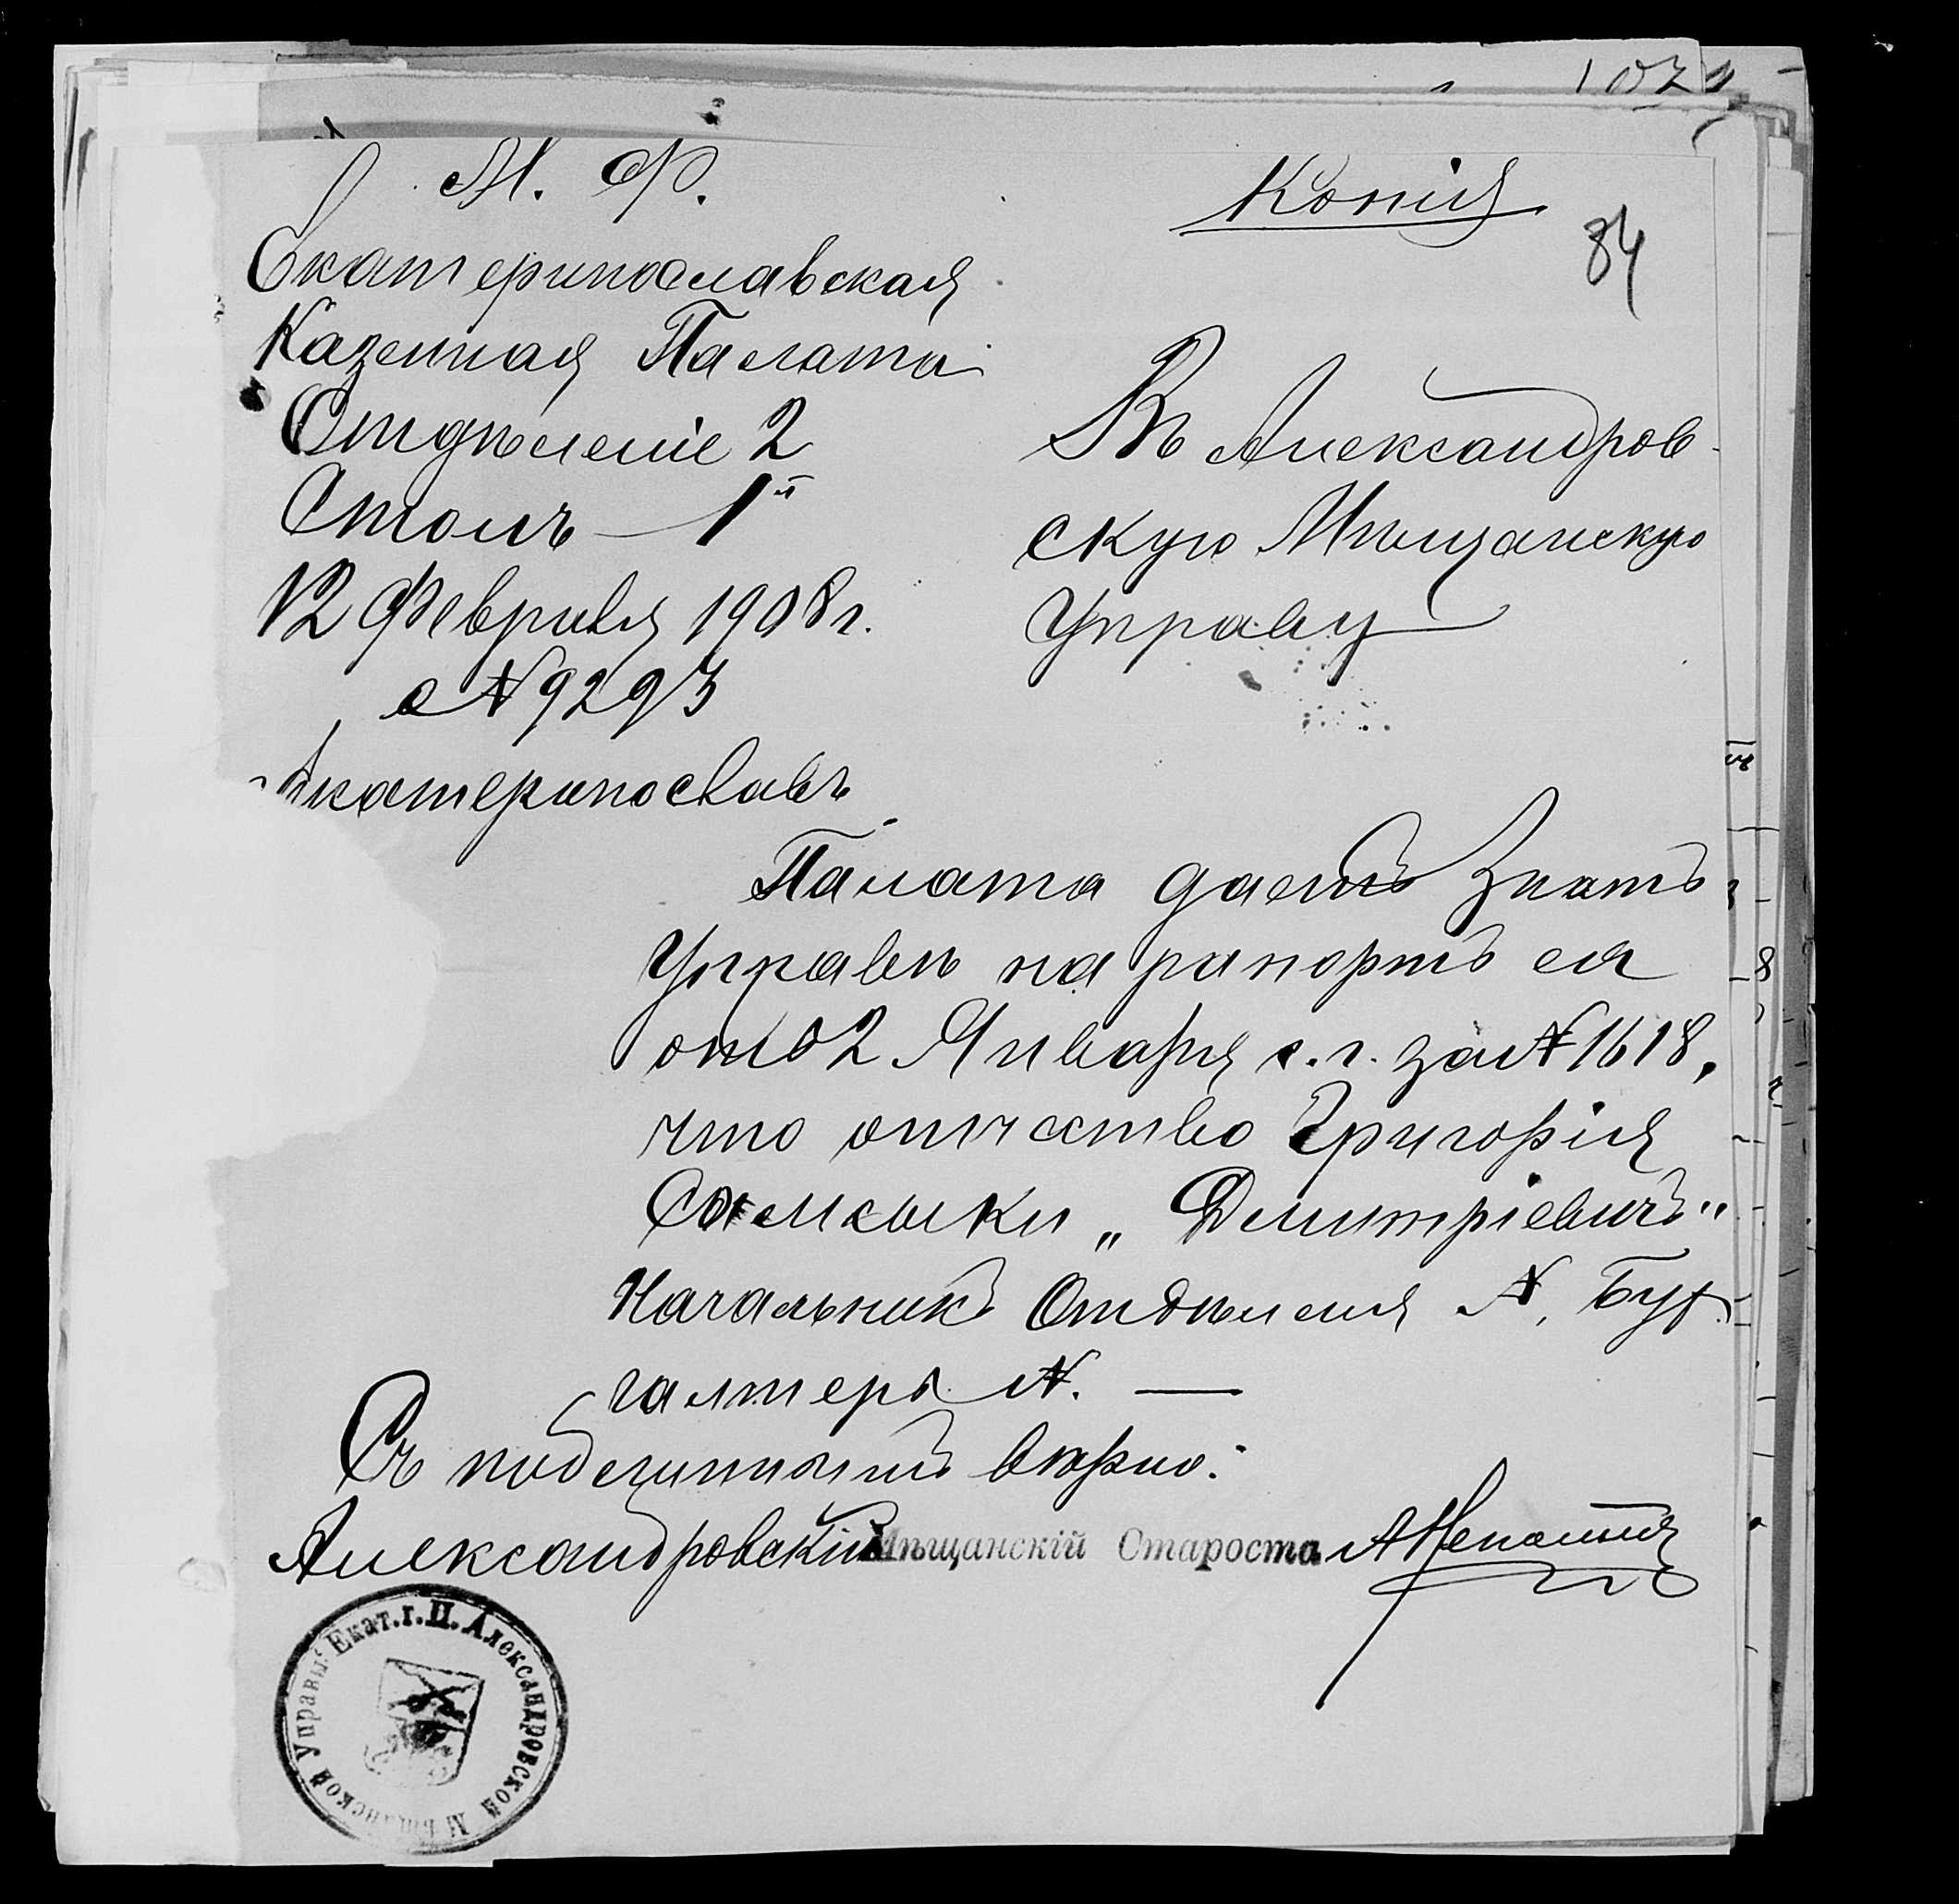 1071
М. Ф.
Екатеринославская
Казенная Палата
Отдѣленіе 2
Столъ – 1й
12 Февраля 1908 г.
№ 9293
Екатеринославъ
Копія
84
Въ Александров-
скую Мѣщанскую
Управу
Палата даетъ знать
Управѣ на рапортъ ея
отъ 2 Января с. г. за № 1618,
что отчество Григорія
„Димитріевичъ"
Начальникъ Отдѣленія N, Бух-
галтеръ N. —
Съ подлиннымъ вѣрно:
Александровскій Мѣщанскій Староста
Екат. г. П. Александровской Мѣщанской Управы